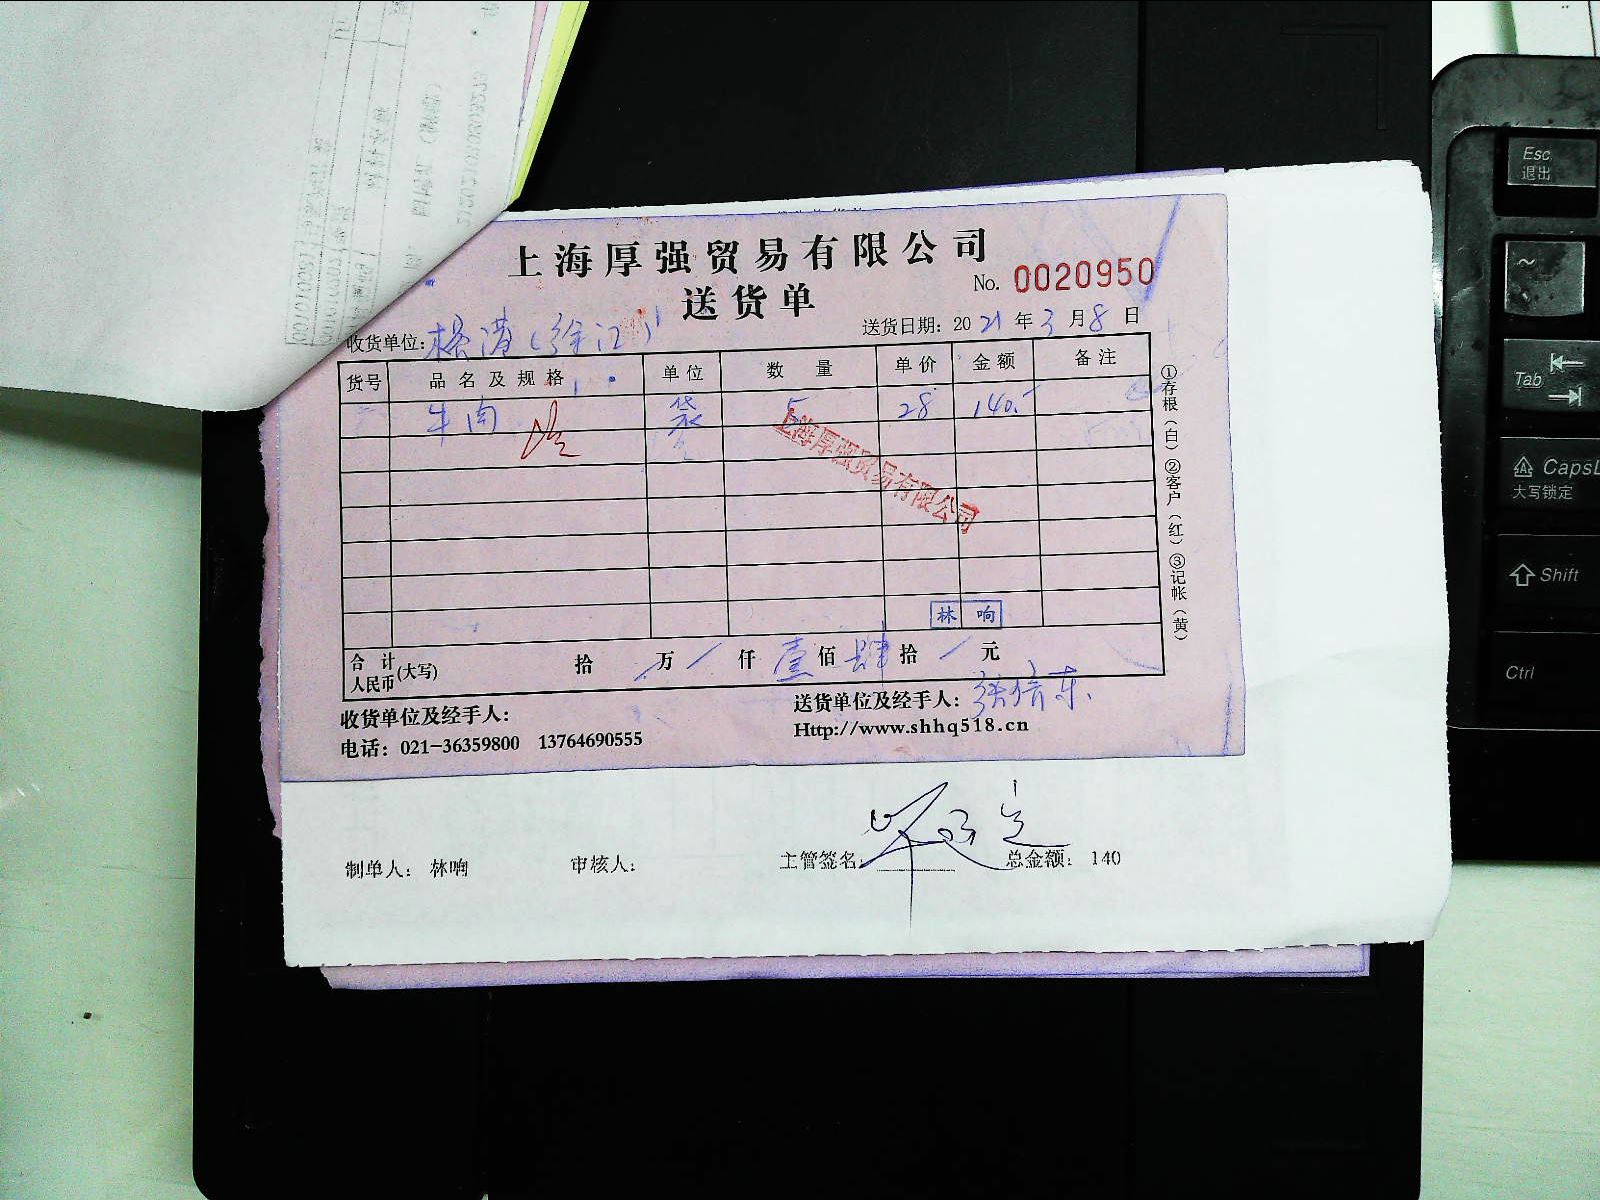 上海厚强贸易有限公司
No. 0020950
送货单
收货单位: 送货日期: 2021年3月8日
货号 品名及规格 单位 数量 单价 金额 备注
牛肉 袋 5 28 140.-
上海厚强贸易有限公司
林响
合计人民币(大写) 拾 万 仟 壹佰 肆拾 元
①存根(白)②客户(红)③记帐(黄)
收货单位及经手人: 送货单位及经手人:
电话: 021-36359800 13764690555 Http://www.shhq518.cn
制单人: 林响 审核人: 主管签名: 总金额: 140
Esc
退出
~
Tab
CapsL
大写锁定
Shift
Ctrl